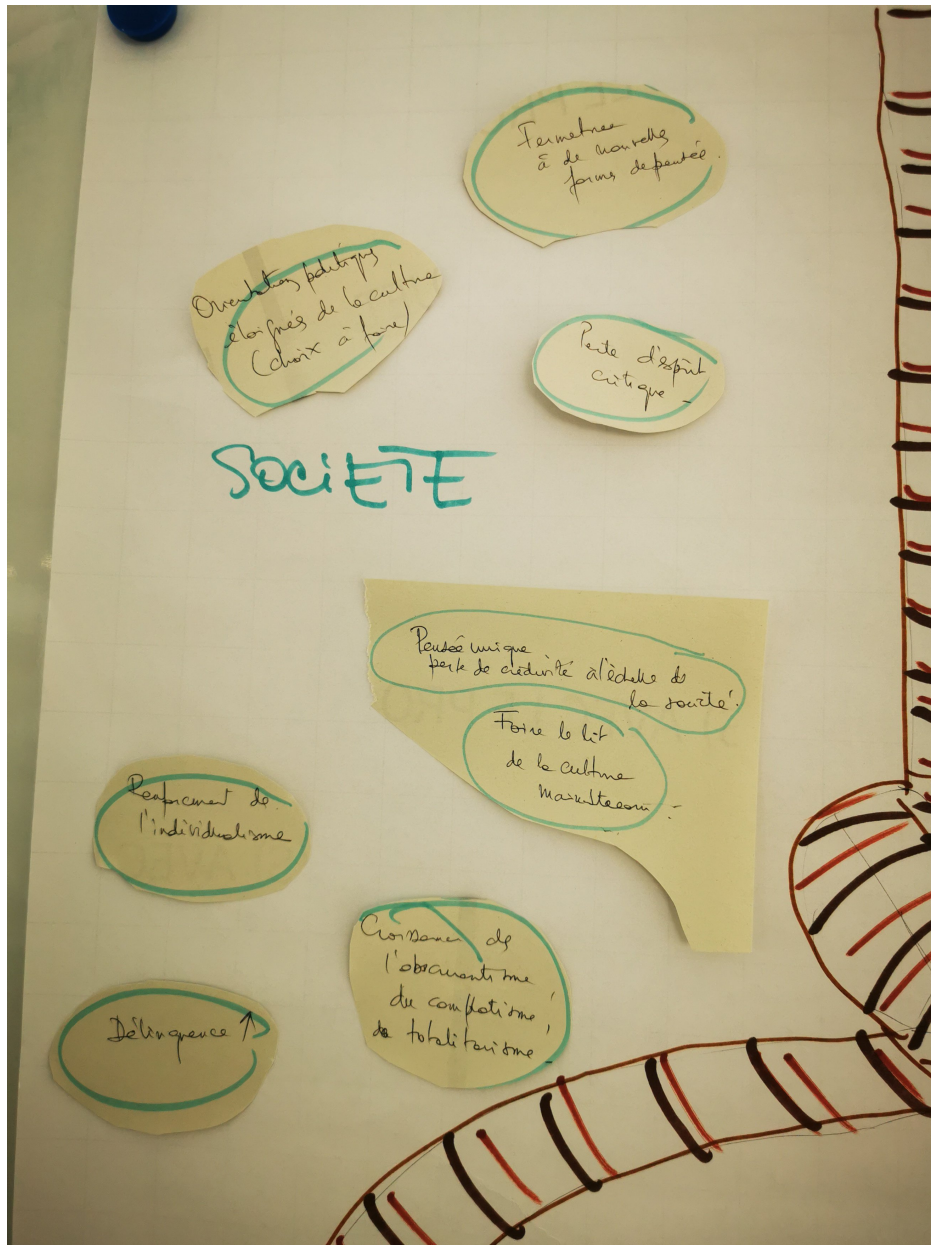 Fermeture
à de nouvelles
formes de pensée.
Orientations politiques
éloignés de la culture
(choix à faire)
Perte d'esprit
critique -
SOCIETE
Pensée unique
perte de créativité à l'échelle de
la société.
Faire le lit
de la culture
mainstream -
Renforcement de
l'individualisme
Croissance de
l'obscurantisme
du complotisme,
du totalitarisme -
Délinquence ↑